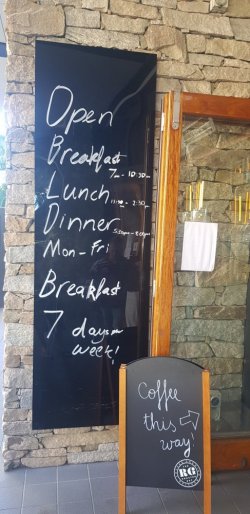 Open
Breakfast
7am - 10:30am
Lunch
Dinner
5:30pm - 8:00pm
Mon - Fri
Breakfast
7 days a
week!
Coffee
this
way!
RG